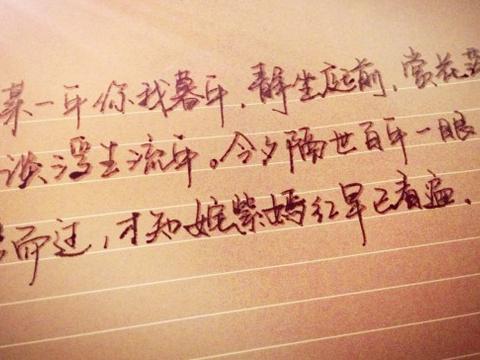 某一年你我暮年，静坐庭前，赏花
谈浮生流年。今夕隔世百年一眼
而过，才知姹紫嫣红早已看遍，